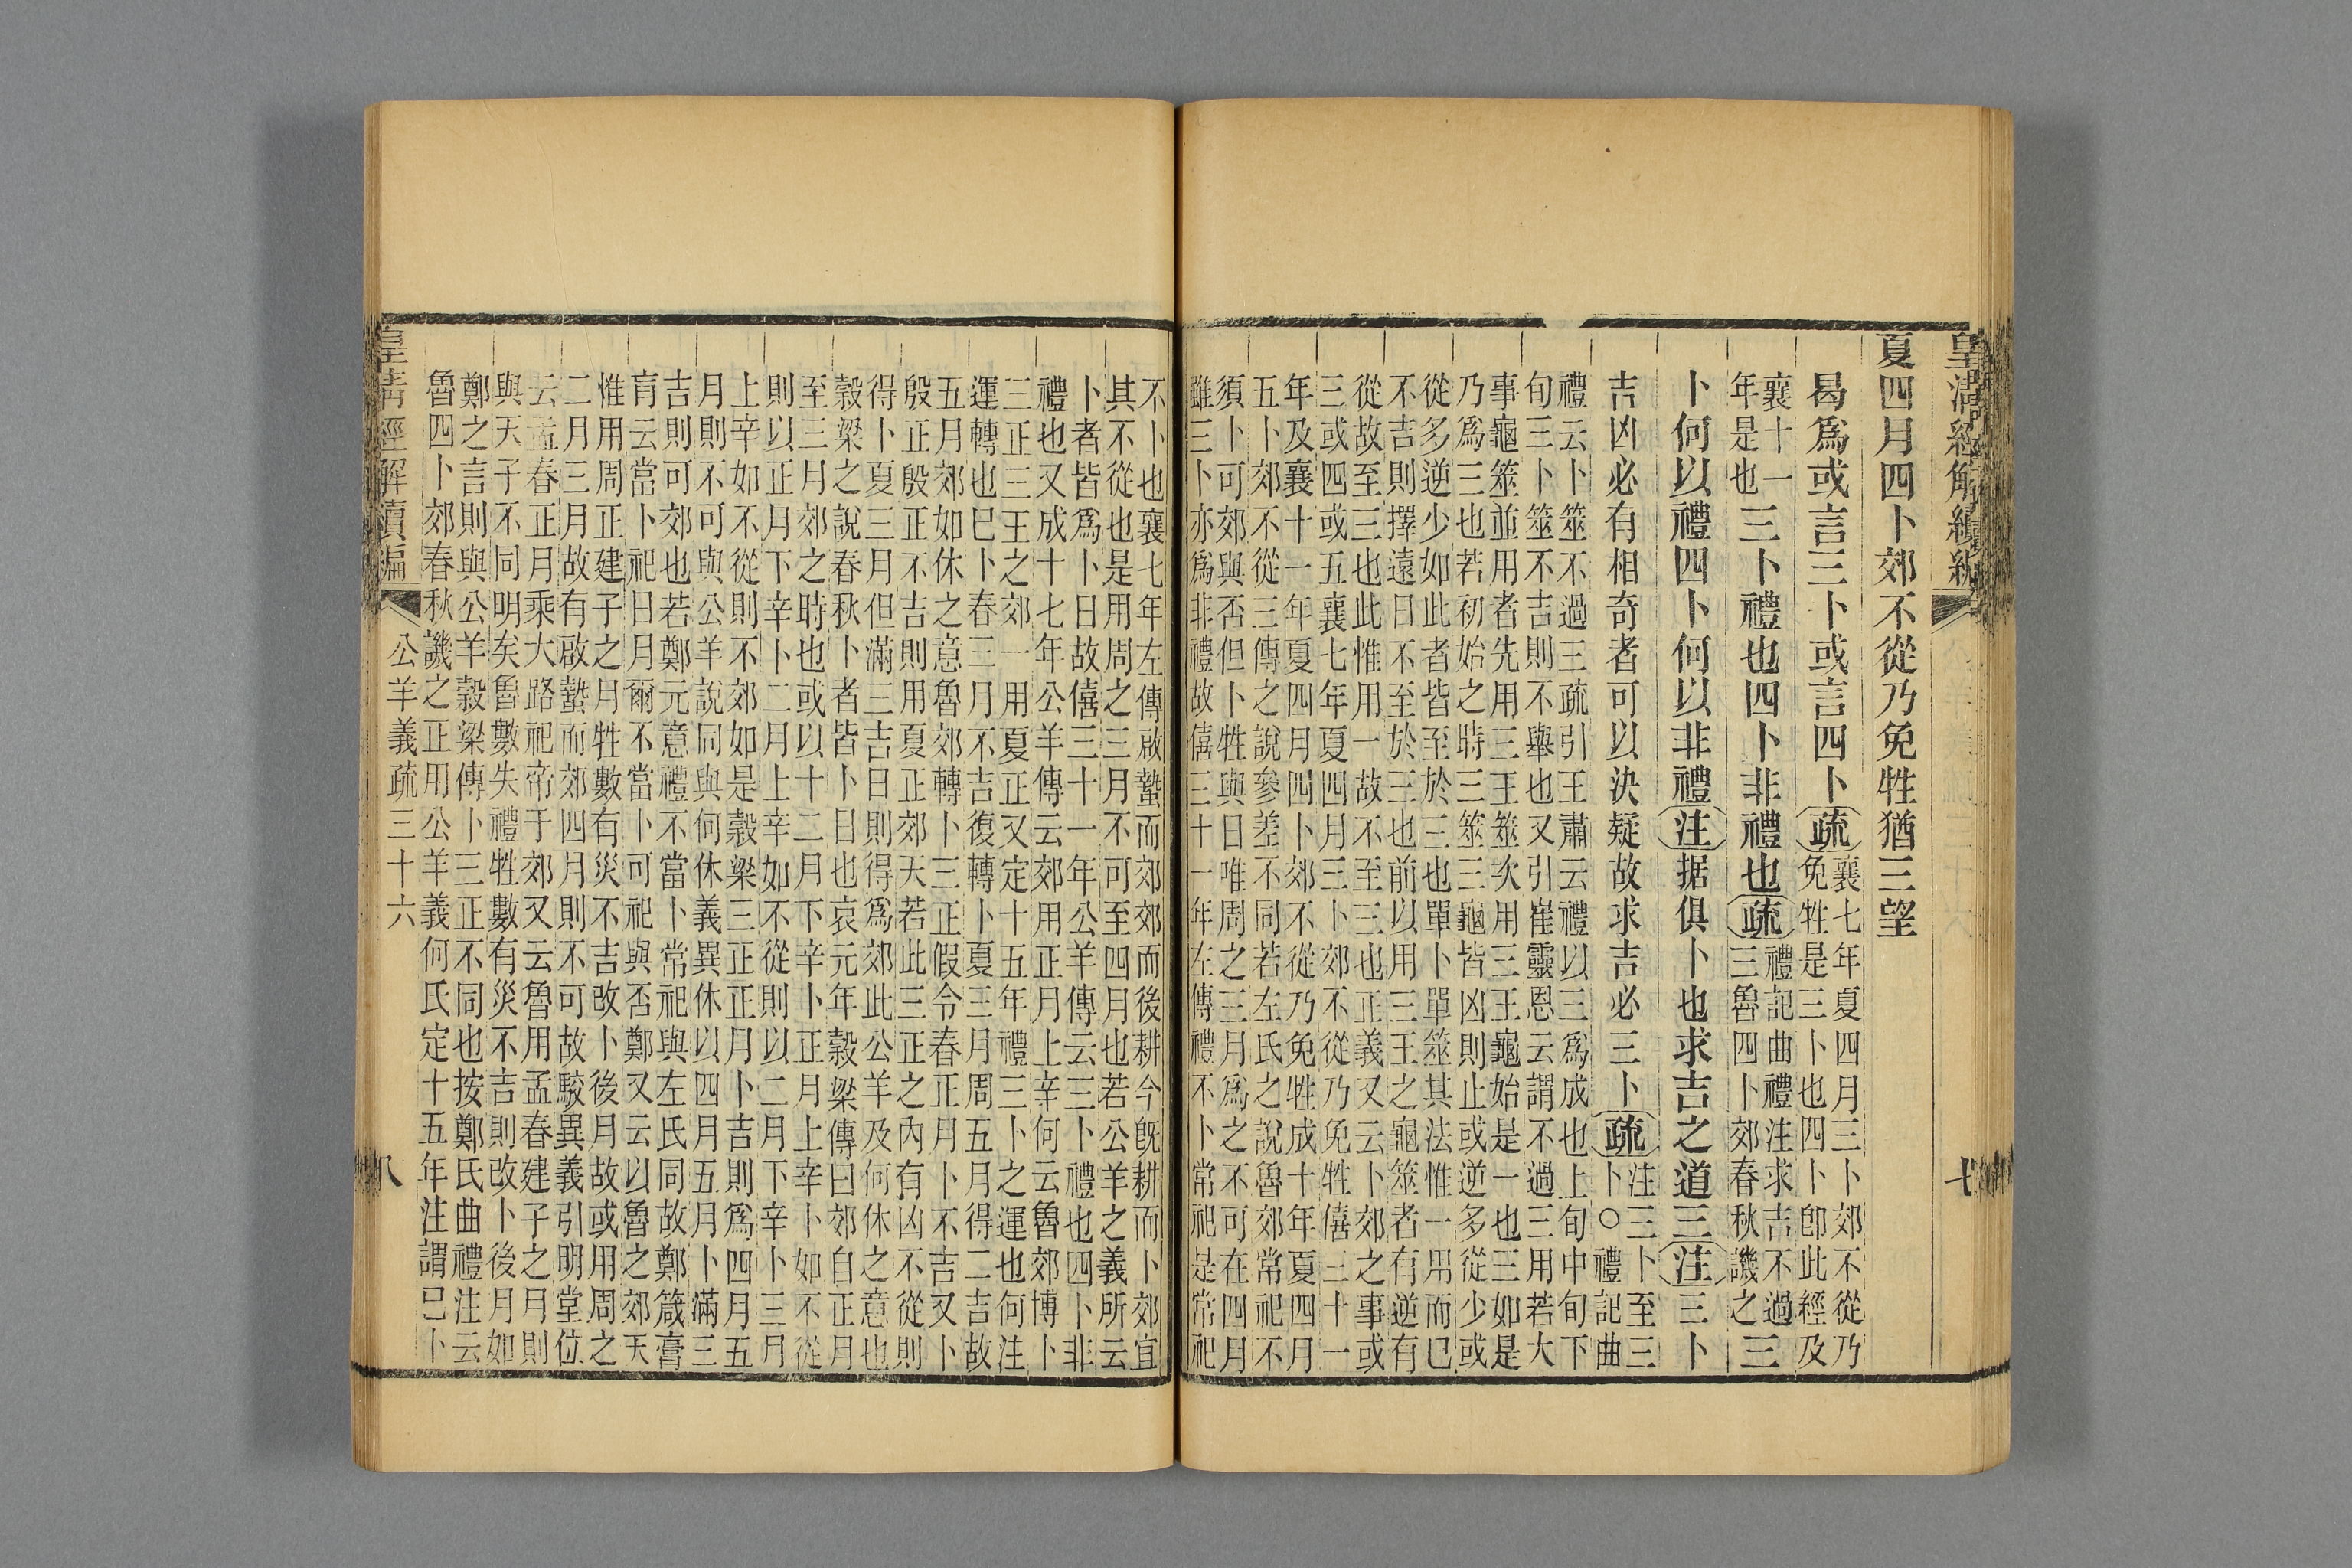 皇清經解續編 七
夏四月四卜郊不從乃免牲猶三望
曷爲或言三卜或言四卜疏
襄七年夏四月三卜郊不從乃
免牲是三卜也四卜卽此經及
襄十一
年是也
三卜禮也四卜非禮也疏
禮記曲禮注求吉不過
三魯四卜郊春秋譏之
三
卜何以禮四卜何以非禮注据俱卜也求吉之道三注三卜
吉凶必有相奇者可以決疑故求吉必三卜疏
注三卜至三
卜○禮記曲
禮云卜筮不過三疏引王肅云禮以三爲成也上旬中旬下
旬三卜筮不吉則不舉也又引崔靈恩云謂不過三用若大
事龜筮並用者先用三王筮次用三王龜始是一也三如是
乃爲三也若初始之時三筮三龜皆凶則止或逆多從少或
從多逆少如此者皆至於三也單卜單筮其法惟一用而已
不吉則擇遠日不至於三也前以用三王之龜筮者有逆有
從故至三也此惟用一故不至三也正義又云卜郊之事或
三或四或五襄七年夏四月三卜郊不從乃免牲僖三十一
年及襄十一年夏四月四卜郊不從乃免牲成十年夏四月
五卜郊不從三傳之說參差不同若左氏之說魯郊常祀不
須卜可郊與否但卜牲與日唯周之三月爲之不可在四月
雖三卜亦爲非禮故僖三十一年左傳禮不卜常祀是常祀
不卜也襄七年左傳啟蟄而郊郊而後耕今旣耕而卜郊宜
其不從也是用周之三月不可至四月也若公羊之義所云
卜者皆爲卜日故僖三十一年公羊傳云三卜禮也四卜非
禮也又成十七年公羊傳云郊用正月上辛何云魯郊博卜
三正三王之郊一用夏正又定十五年禮三卜之運也何注
運轉也已卜春三月不吉復轉卜夏三月周五月得二吉故
五月郊如休之意魯郊轉卜三正假令春正月卜不吉又卜
殷正殷正不吉則用夏正郊天若此三正之內有凶不從則
得卜夏三月但滿三吉日則得爲郊此公羊及何休之意也
穀梁之說春秋卜者皆卜日也哀元年穀梁傳曰郊自正月
至三月郊之時也或以十二月下辛卜正月上辛卜如不從
則以正月下辛卜二月上辛如不從則以二月下辛卜三月
上辛如不從則不郊如是穀梁三正正月卜吉則爲四月五
月則不可與公羊說同與何休義異休以四月五月卜滿三
吉則可郊也若鄭元意禮不當卜常祀與左氏同故鄭箴膏
肓云當卜祀日月爾不當卜可祀與否鄭又云以魯之郊天
惟用周正建子之月牲數有災不吉改卜後月故或用周之
二月三月故有啟蟄而郊四月則不可故駮異義引明堂位
云孟春正月乘大路祀帝于郊又云魯用孟春建子之月則
與天子不同明矣魯數失禮牲數有災不吉則改卜後月如
鄭之言則與公羊穀梁傳卜三正不同也按鄭氏曲禮注云
魯四卜郊春秋譏之正用公羊義何氏定十五年注謂已卜
皇清經解續編 公羊義疏三十六 八